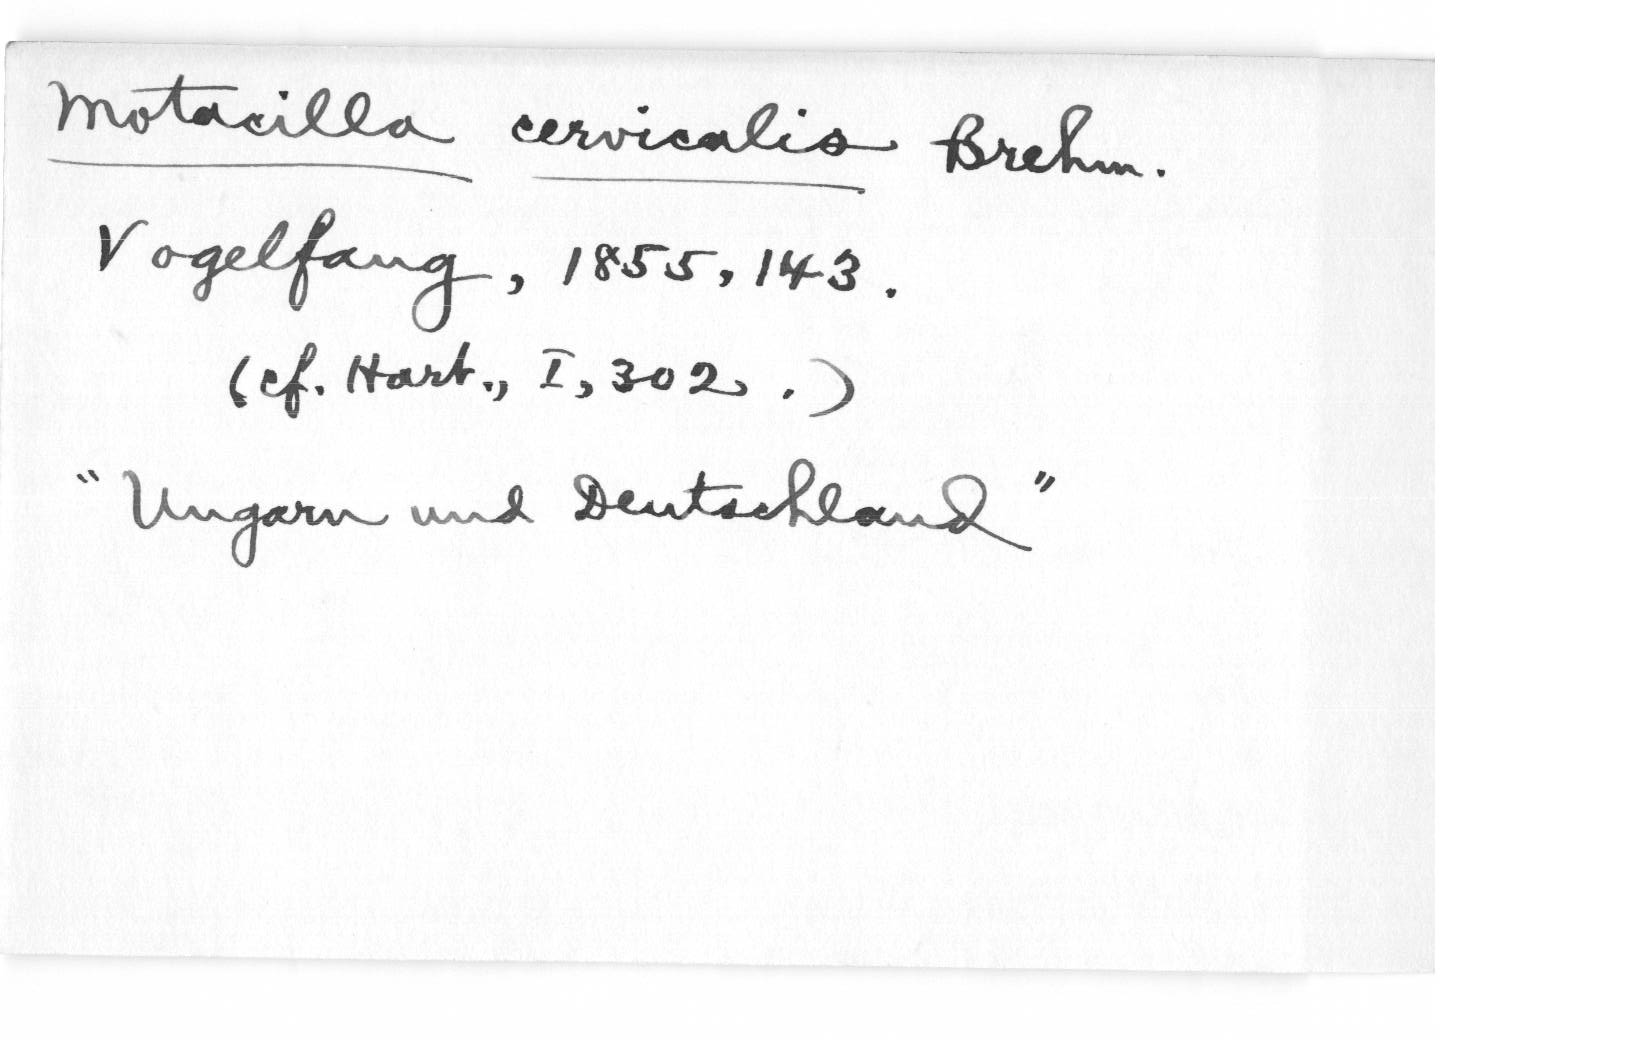 Motacilla cervicalis Brehm.
Vogelfang, 1855, 143.
(cf. Hart., I, 302.)
"Ungarn und Deutschland"